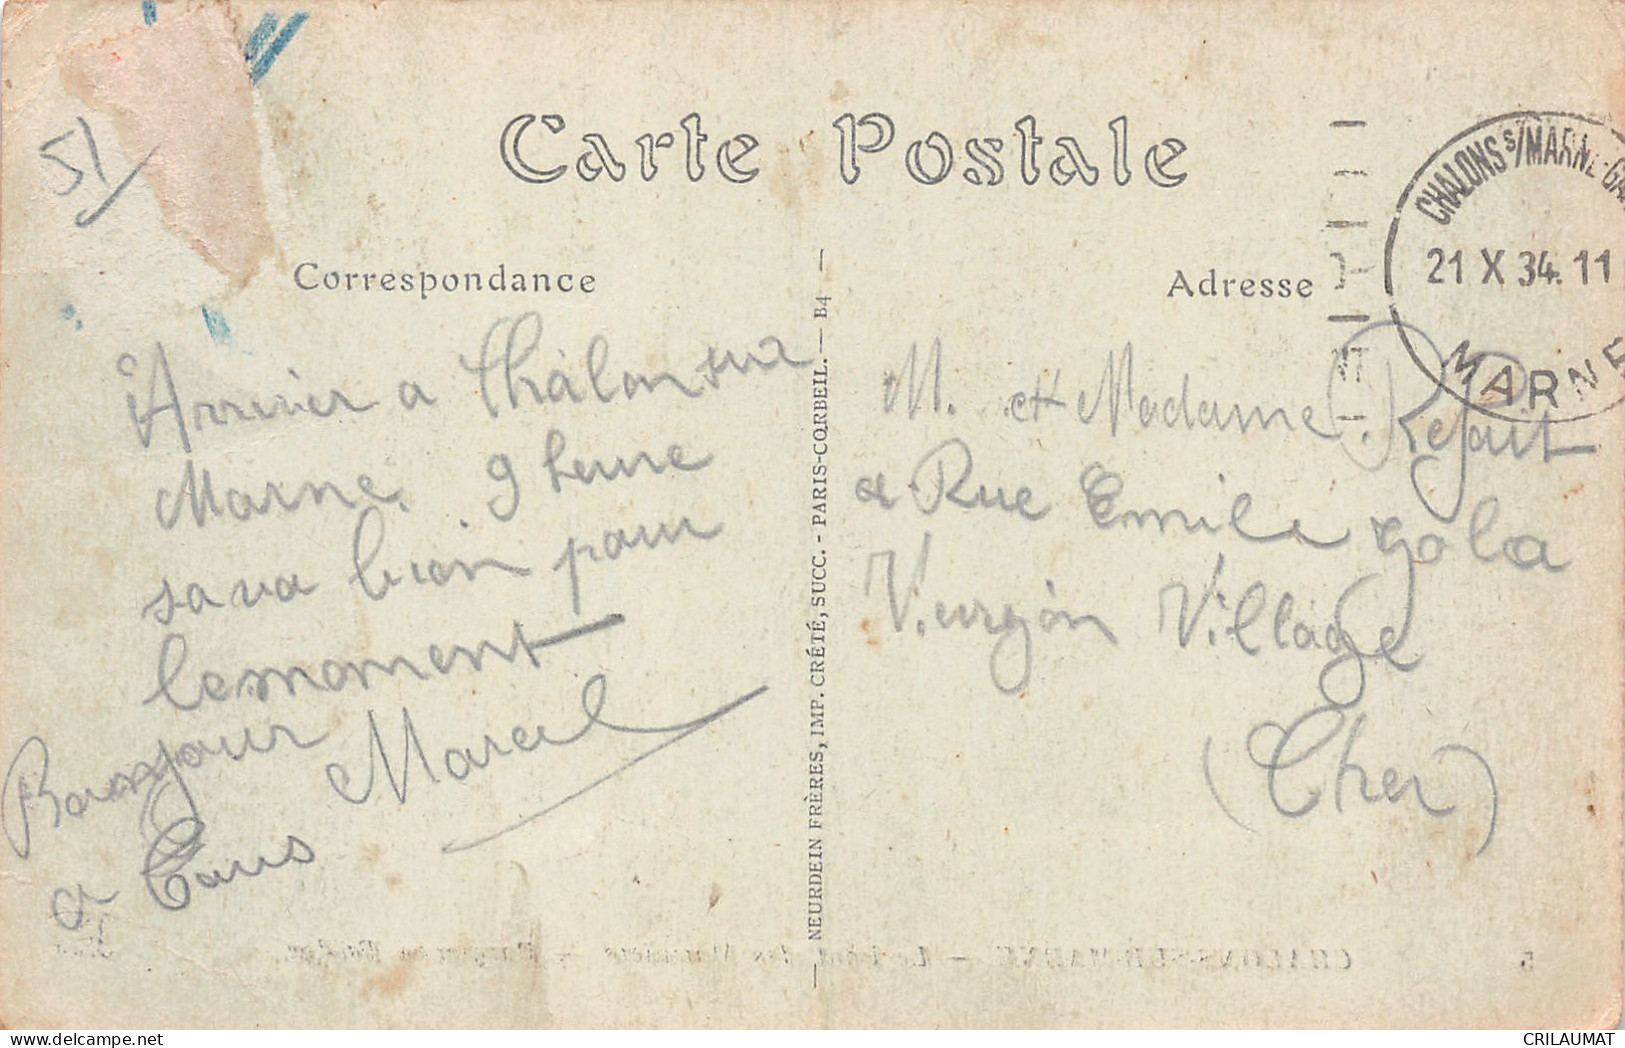 51
Carte Postale
CHALONS S/MARNE-GA
21 X 34. 11
MARNE
Correspondance
Adresse
Arriver a Châlon sur
Marne 9 heure
sava bien pour
le moment
Bonjour Marcel
a Tous
NEURDEIN FRÈRES, IMP. CRÉTÉ, SUCC. - PARIS-CORBEIL. — B4 —
M. et Madame
a Rue Emile Zola
Vierzon Village
(Cher)
5 CHALONS-SUR-MARNE. — Le des Mariniers
CRILAUMAT